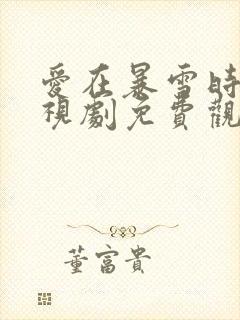 愛在暴雪時
視劇免費觀
董富貴